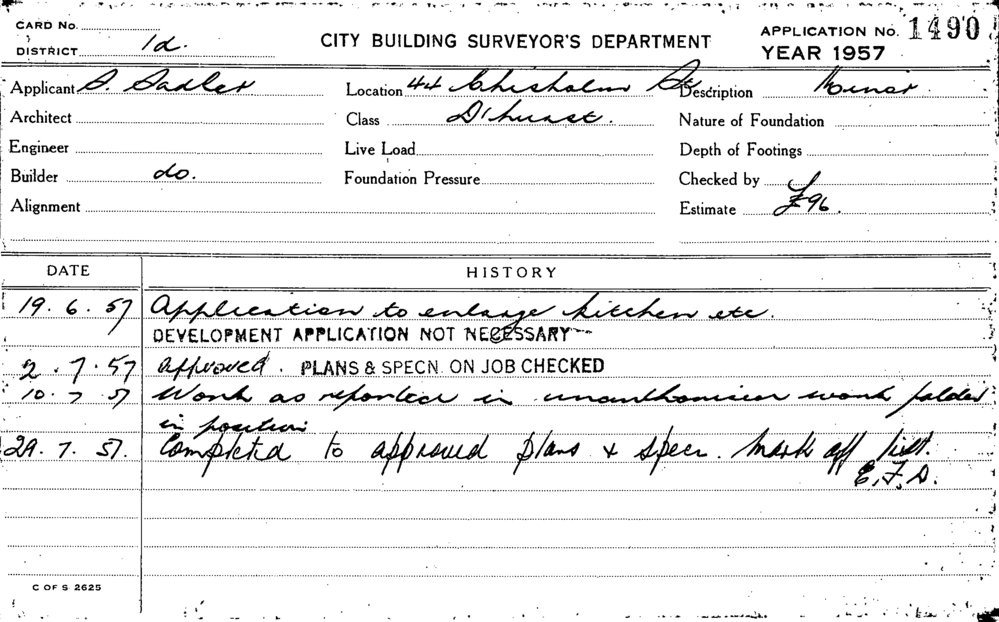 CARD No.
DISTRICT 1d.
CITY BUILDING SURVEYOR'S DEPARTMENT
APPLICATION No. 1490
YEAR 1957
Applicant S. Sadler Location 44 Chisholm St Description Minor
Architect Class D'hurst. Nature of Foundation
Engineer Live Load Depth of Footings
Builder do. Foundation Pressure Checked by
Alignment Estimate £96.
DATE HISTORY
19. 6. 57 Application to enlarge kitchen etc.
DEVELOPMENT APPLICATION NOT NECESSARY
2. 7. 57 Approved. PLANS & SPECN. ON JOB CHECKED
10. 7 57 Work as reported in unauthorised work folder
in position
29. 7. 57. Completed to approved plans & specn. Mark off list.
E.F.D.
C OF S 2625